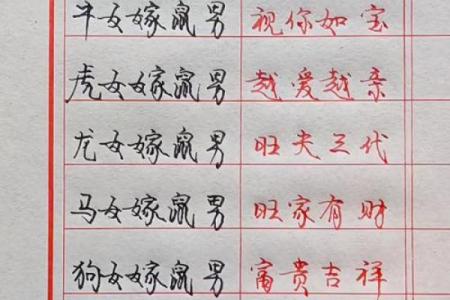 牛女嫁鼠男 视你如宝
虎女嫁鼠男 越爱越亲
龙女嫁鼠男 旺夫三代
马女嫁鼠男 旺家有财
狗女嫁鼠男 富贵吉祥